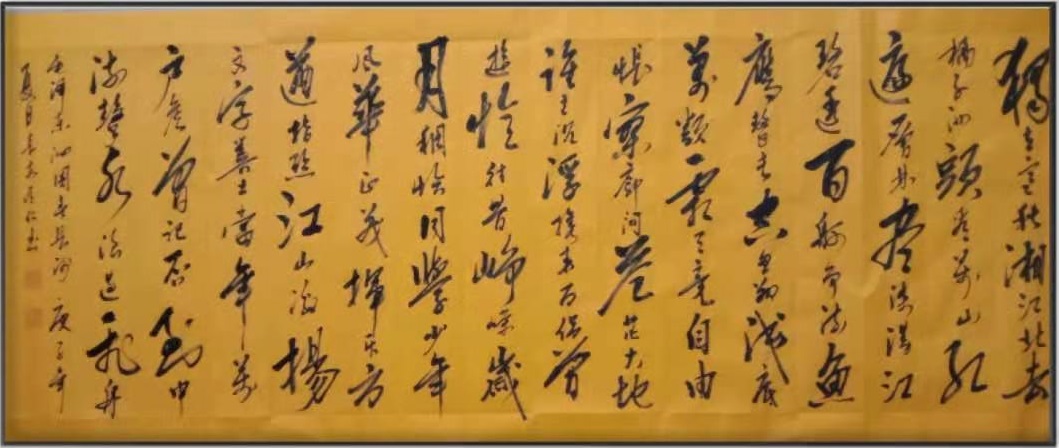 獨立寒秋湘江北去
橘子洲頭看万山红
遍层林尽染漫江
碧透百舸争流鱼
鹰击长空鱼翔浅底
萬类霜天竞自由
怅寥廓问苍茫大地
谁主沉浮携来百侣曾
遊忆往昔峥嵘岁
月稠恰同學少年
风華正茂挥斥方
遒指点江山激揚
文字粪土当年万
户侯曾记否到中
流击水浪遏飞舟
毛泽东沁园春长沙 庚子年
夏日 书